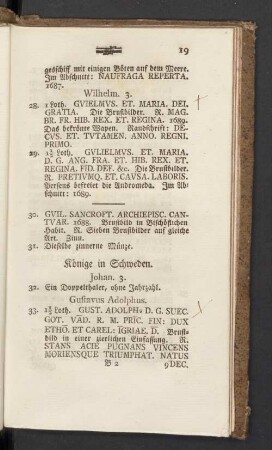 19
geßschiff mit einigen Böten auf dem Meere.
Im Abschnitt: NAUFRAGA REPERTA.
1687.
Wilhelm. 3.
28. 1 Loth. GVIELMVS. ET. MARIA. DEI.
GRATIA. Die Brustbilder. R. MAG.
BR. FR. HIB. REX. ET. REGINA. 1689.
Das bekrönte Wapen. Randschrift: DE-
CVS. ET. TVTAMEN. ANNO. REGNI.
PRIMO.
29. 1½ Loth. GVLIELMVS. ET. MARIA.
D. G. ANG. FRA. ET. HIB. REX. ET.
REGINA. FID. DEF. &c. Die Brustbilder.
R. PRETIVMQ. ET. CAVSA. LABORIS.
Perseus befreiet die Andromeda. Im Ab-
schnitt: 1689.
30. GVIL. SANCROFT. ARCHIEPISC. CAN-
TVAR. 1688. Brustbild in Bischöflichen
Habit. R. Sieben Brustbilder auf gleiche
Art. Zinn.
31. Dieselbe zinnerne Münze.
Könige in Schweden.
Johan. 3.
32. Ein Doppelthaler, ohne Jahrzahl.
Gustavus Adolphus.
33. 1¾ Loth. GUST. ADOLPH: D. G. SUEC.
GOT. VAD. R. M. PRIC. FIN: DUX
ETHO. ET CAREL: IGRIAE. D. Brust-
bild in einer zierlichen Einfassung. R.
STANS ACIE PUGNANS VINCENS
MORIENSQUE TRIUMPHAT. NATUS
B 2 9 DEC.